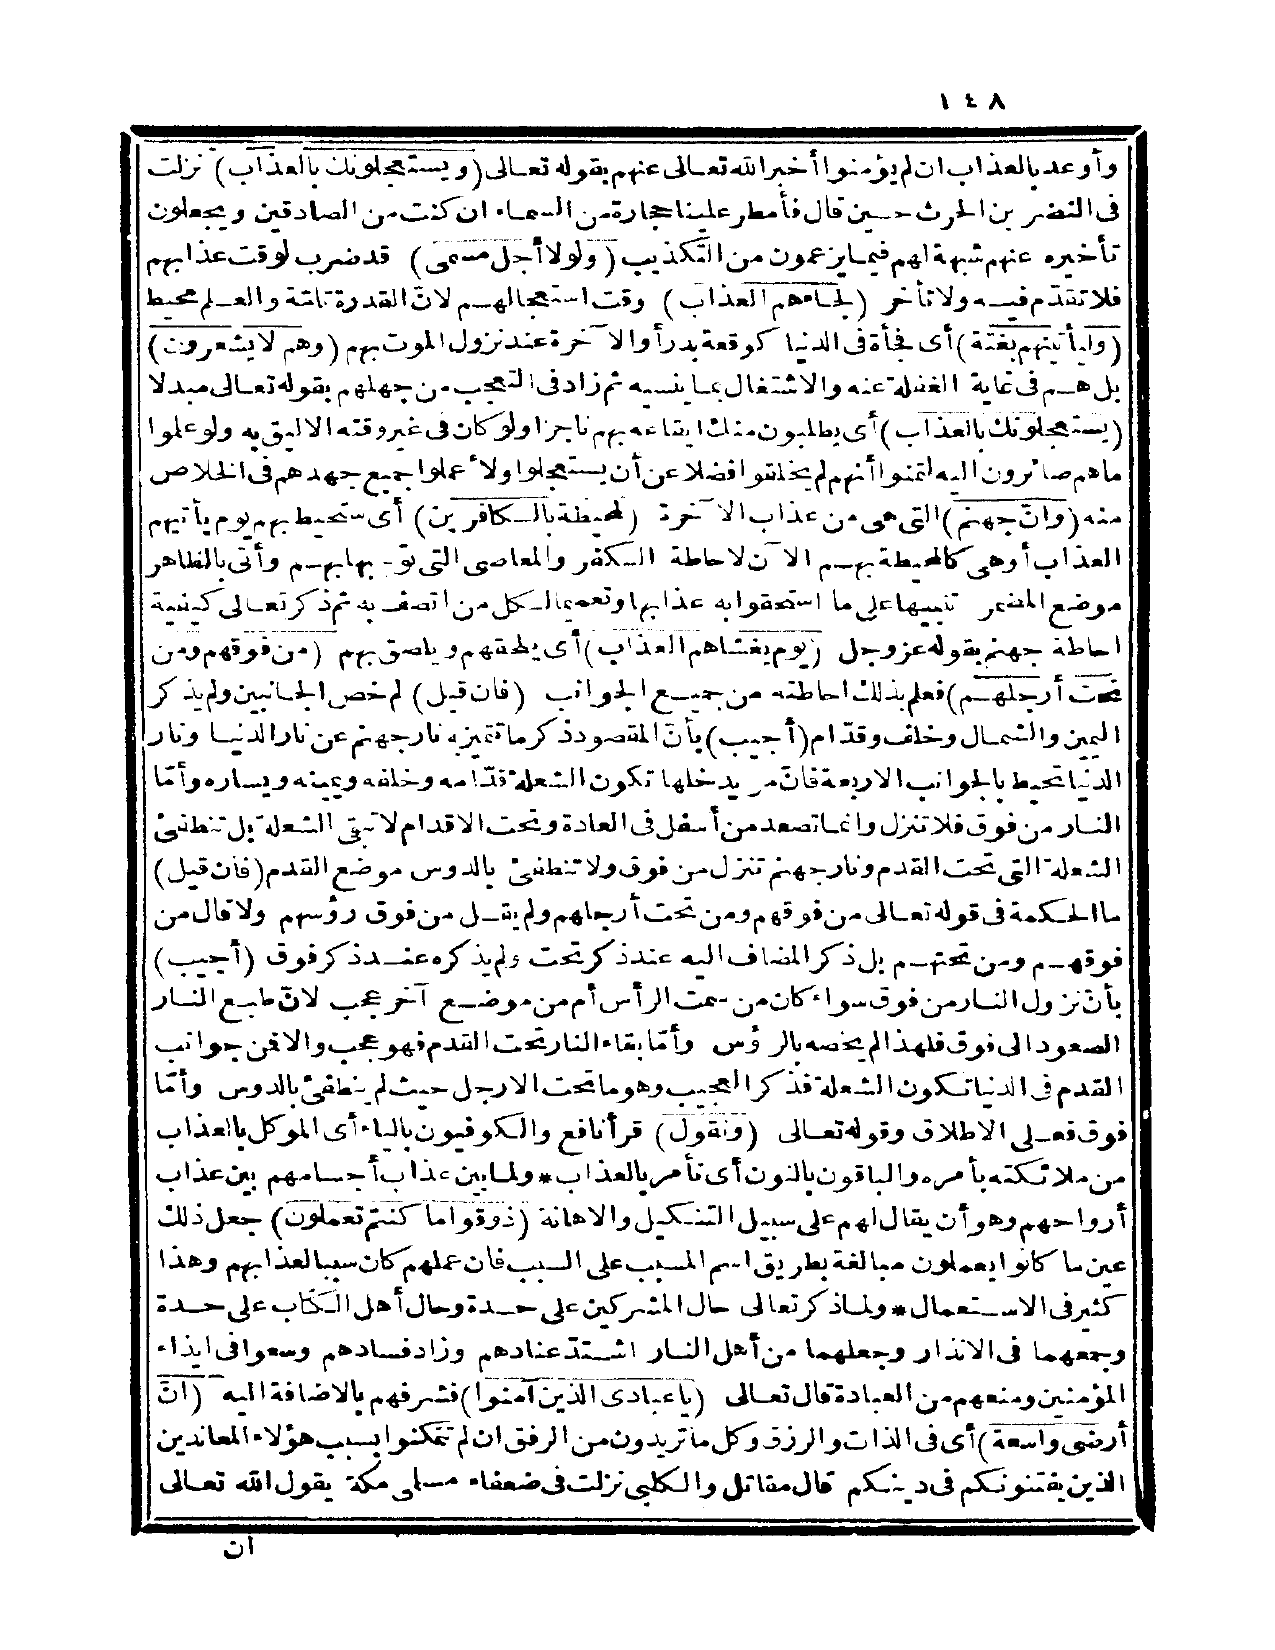 ١٤٨
وأوعد بالعذاب ان لم يؤمنوا أخبر الله تعالى عنهم بقوله تعالى (ويستعجلونك بالعذاب) نزلت
فى النضر بن الحرث حين قال فأمطر علينا حجارة من السماء ان كنت من الصادقين ويجعلون
تأخيره عنهم شبهة لهم فيما يزعمون من التكذيب (ولولا أجل مسمى) قد ضرب لوقت عذابهم
فلا تقدّم فيه ولا تأخر (لجاءهم العذاب) وقت استعجالهم لانّ القدرة تامّة والعلم محيط
(وليأتينهم بغتة) أى فجأة فى الدنيا كوقعة بدر أو الآخرة عند نزول الموت بهم (وهم لا يشعرون)
بل هم فى غاية الغفلة عنه والاشتغال بما ينسيه ثم زاد فى التعجب من جهلهم بقوله تعالى مبدلا
(يستعجلونك بالعذاب) أى يطلبون منك ايقاعه بهم ناجزا ولو كان فى غير وقته الاليق به ولو علموا
ما هم صائرون اليه لتمنوا أنهم لم يخلقوا فضلا عن أن يستعجلوا ولأعملوا جميع جهدهم فى الخلاص
منه (وانّ جهنم) التى هى من عذاب الآخرة (لمحيطة بالكافرين) أى ستحيط بهم يوم يأتيهم
العذاب أو هى كالمحيطة بهم الآن لاحاطة الكفر والمعاصى التى توجبها بهم وأتى بالظاهر
موضع المضمر تنبيها على ما استحقوا به عذابها وتعميما لكل من اتصف به ثم ذكر تعالى كيفية
احاطة جهنم بقوله عز وجل (يوم يغشاهم العذاب) أى يلحقهم ويلصق بهم (من فوقهم ومن
تحت أرجلهم) فعلم بذلك احاطته من جميع الجوانب (فان قيل) لم خص الجانبين ولم يذكر
اليمين والشمال وخلف وقدّام (أجيب) بأنّ المقصود ذكر ما تتميز به نار جهنم عن نار الدنيا ونار
الدنيا تحيط بالجوانب الاربعة فانّ من يدخلها تكون الشعلة قدّامه وخلفه ويمينه ويساره وأمّا
النار من فوق فلا تنزل وانما تصعد من أسفل فى العادة وتحت الاقدام لا تبقى الشعلة بل تنطفئ
الشعلة التى تحت القدم ونار جهنم تنزل من فوق ولا تنطفئ بالدوس موضع القدم (فان قيل)
ما الحكمة فى قوله تعالى من فوقهم ومن تحت أرجلهم ولم يقل من فوق رؤسهم ولا قال من
فوقهم ومن تحتهم بل ذكر المضاف اليه عند ذكر تحت ولم يذكره عند ذكر فوق (أجيب)
بأنّ نزول النار من فوق سواء كان من سمت الرأس أم من موضع آخر عجب لانّ طبع النار
الصعود الى فوق فلهذا لم يخصه بالرؤس وأمّا بقاء النار تحت القدم فهو عجب والا فمن جوانب
القدم فى الدنيا تكون الشعلة فذكر العجيب وهو ما تحت الارجل حيث لم ينطفئ بالدوس وأمّا
فوق فعلى الاطلاق وقوله تعالى (ونقول) قرأ نافع والكوفيون بالياء أى الموكل بالعذاب
من ملائكته بأمره والباقون بالنون أى نأمر بالعذاب * ولما بين عذاب أجسامهم بين عذاب
أرواحهم وهو أن يقال لهم على سبيل التنكيل والاهانة (ذوقوا ما كنتم تعملون) جعل ذلك
عين ما كانوا يعملون مبالغة بطريق اسم المسبب على السبب فان عملهم كان سببا لعذابهم وهذا
كثير فى الاستعمال * ولما ذكر تعالى حال المشركين على حدة وحال أهل الكتاب على حدة
وجمعهما فى الانذار وجعلهما من أهل النار اشتدّ عنادهم وزاد فسادهم وسعوا فى ايذاء
المؤمنين ومنعهم من العبادة قال تعالى (يا عبادى الذين آمنوا) فشرفهم بالاضافة اليه (انّ
أرضى واسعة) أى فى الذات والرزق وكل ما تريدون من الرفق ان لم تتمكنوا بسبب هؤلاء المعاندين
الذين يفتنونكم فى دينكم قال مقاتل والكلبى نزلت فى ضعفاء مسلمى مكة يقول الله تعالى
ان